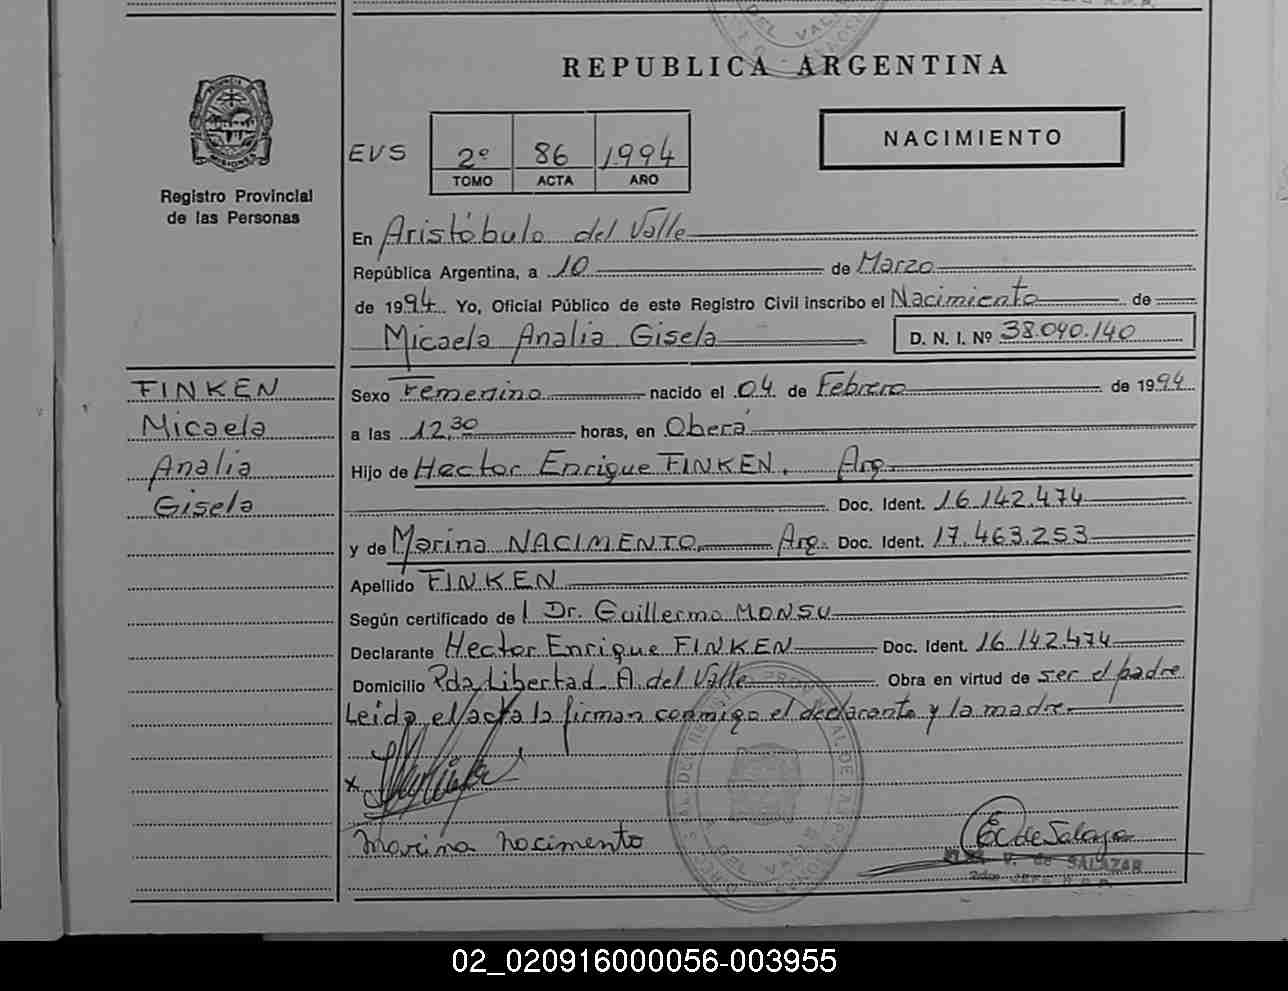 REPUBLICA ARGENTINA
PROVINCIA DE MISIONES
Registro Provincial
de las Personas
EVS
2º 86 1994
TOMO ACTA AÑO
NACIMIENTO
En Aristóbulo del Valle
República Argentina, a 10 de Marzo
de 1994 Yo, Oficial Público de este Registro Civil inscribo el Nacimiento de
Micaela Analia Gisela D. N. I. Nº 38.040.140
FINKEN
Micaela
Analia
Gisela
Sexo Femenino nacido el 04 de Febrero de 1994
a las 12,30 horas, en Oberá
Hijo de Hector Enrique FINKEN. Arg.
Doc. Ident. 16.142.474
y de Marina NACIMENTO Arg. Doc. Ident. 17.463.253
Apellido FINKEN
Según certificado de l Dr. Guillermo MONSU
Declarante Hector Enrique FINKEN Doc. Ident. 16.142.474
Domicilio Pda Libertad A. del Valle Obra en virtud de ser el padre
Leída el acta la firman conmigo el declarante y la madre
x
Marina Nacimento
EcdeSalazar
V. de SALAZAR
JEFE R.P.P.
02_020916000056-003955